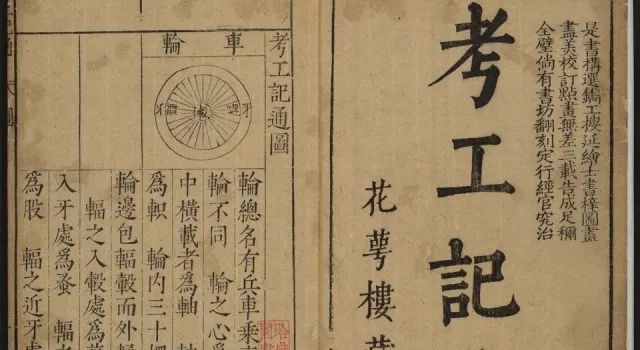 是書構選鐫工搜延繪士書梓圖畫
盡美校訂點畫無差三載告成足稱
全璧倘有書坊翻刻定行經官究治
考工記
花萼樓
考工記通圖
車輪
牙
輪總名有兵車乘
輪不同 輪之心
中橫載者為軸
為軹 輪內三十
輪邊包輻轂而外
輻之入轂處為
入牙處為蚤 輻
為股 輻之近牙處